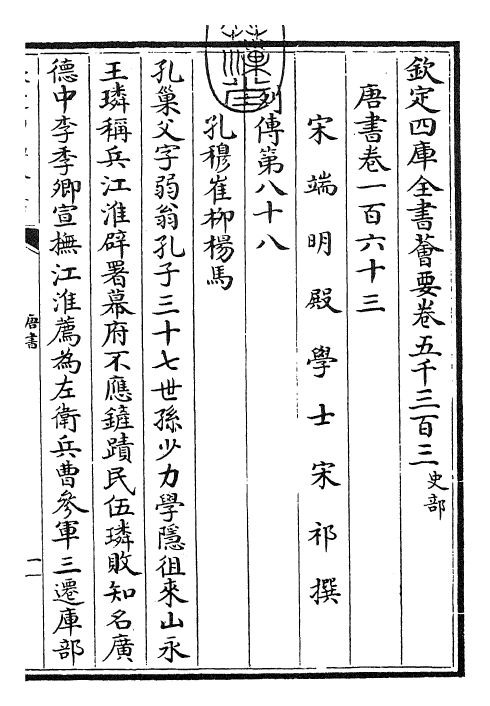 欽定四庫全書薈要卷五千三百三 史部
唐書卷一百六十三
宋端明殿學士宋祁撰
列傳第八十八
孔穆崔柳楊馬
孔巢父字弱翁孔子三十七世孫少力學隱徂來山永
王璘稱兵江淮辟署幕府不應鏟蹟民伍璘敗知名廣
德中李季卿宣撫江淮薦為左衛兵曹參軍三遷庫部
唐書
一